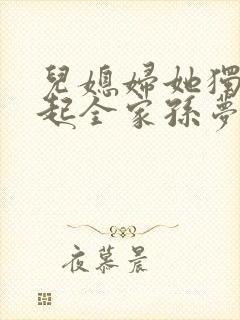 兒媳婦她獨
起全家孫夢
夜慕晨